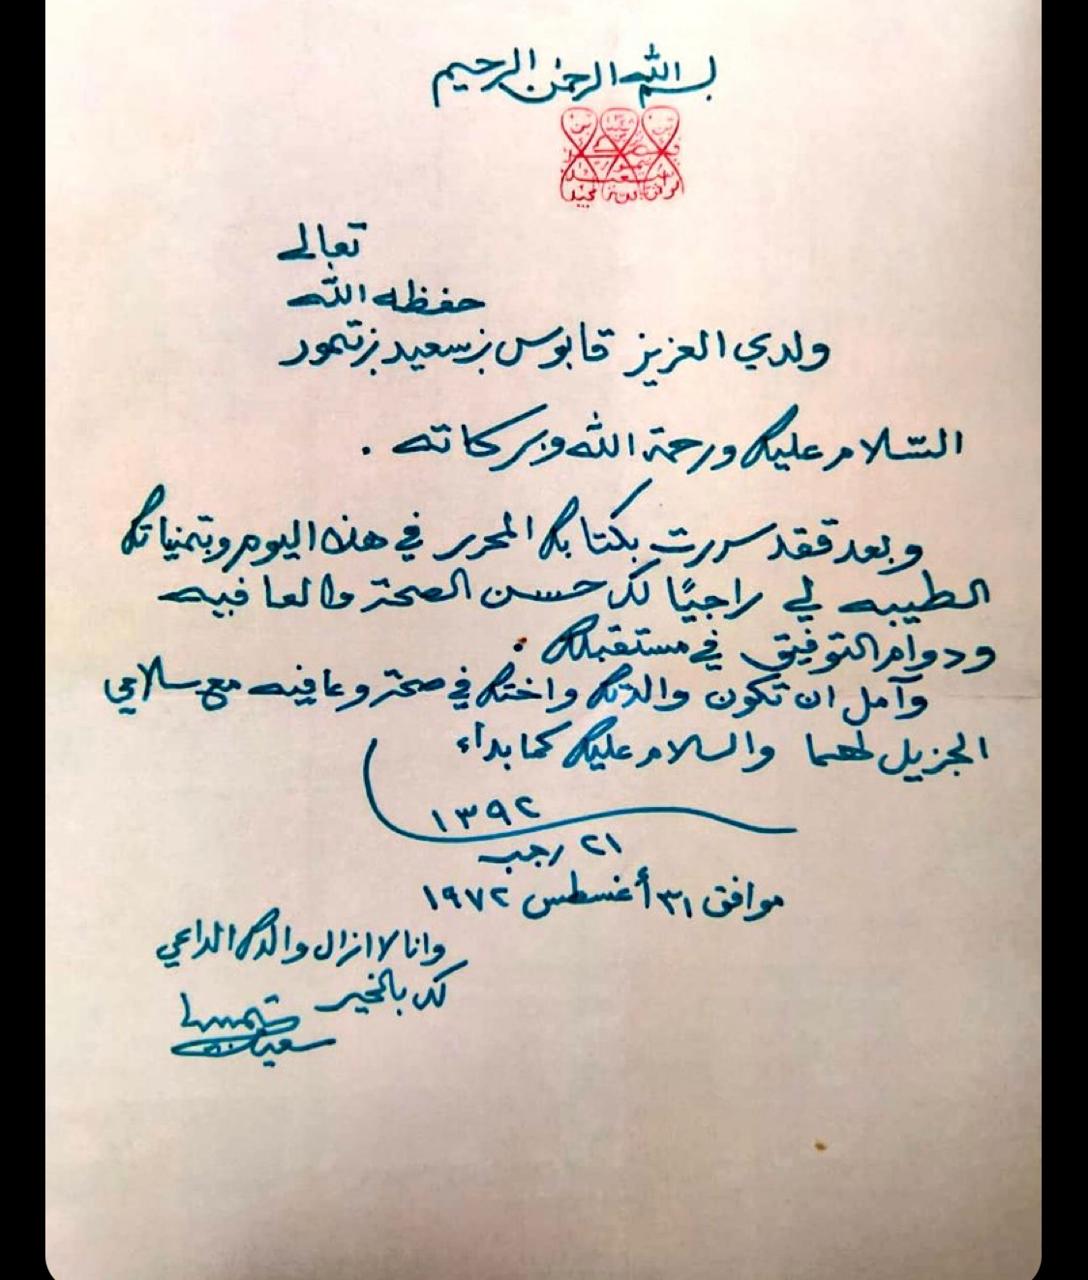 بسم الله الرحمن الرحيم
تعالى
حفظه الله
ولدي العزيز قابوس بن سعيد بن تيمور
السّلام عليك ورحمة الله وبركاته .
وبعد فقد سررت بكتابك المحرر في هذا اليوم وبتمنياتك
الطيبه لي راجيًا لك حسن الصحة والعافيه
ودوام التوفيق في مستقبلك .
وآمل ان تكون والدتك واختك في صحة وعافيه مع سلامي
الجزيل لهما والسلام عليك كما بدأ
١٣٩٢
٢١ رجب
موافق ٣١ أغسطس ١٩٧٢
وانا لا ازال والدك الداعي
لك بالخير
سعيد بن تيمور